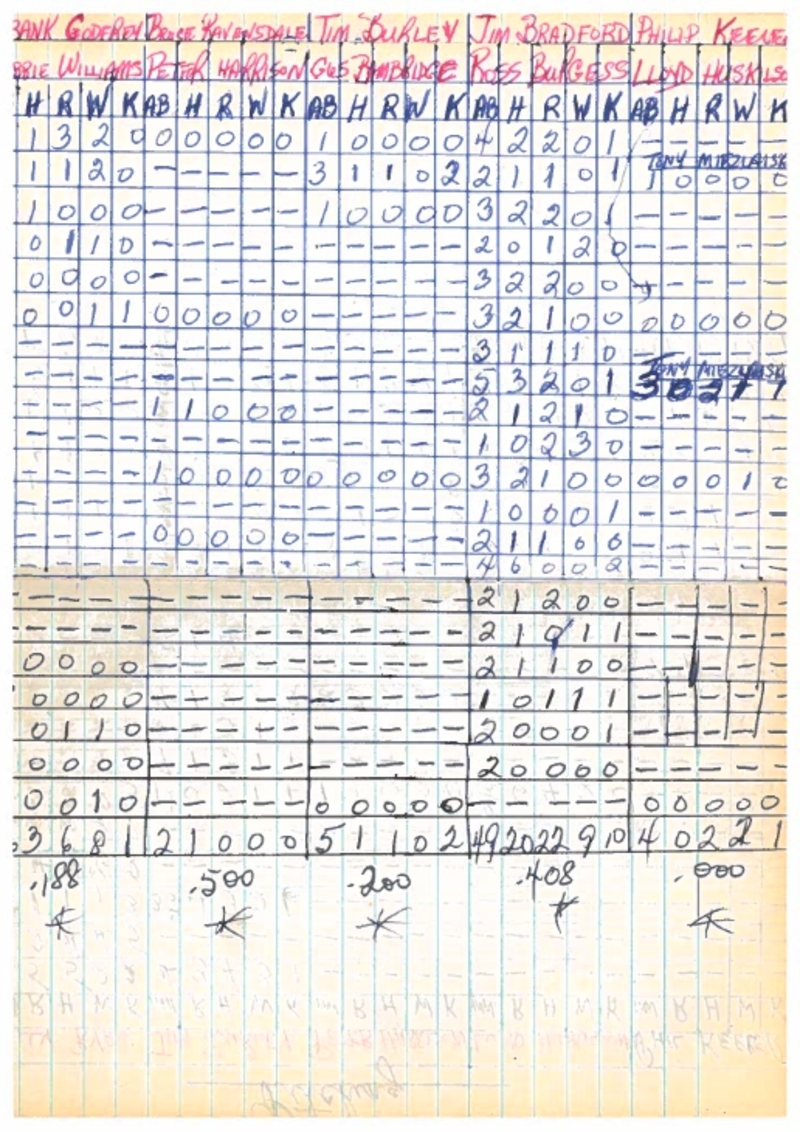 BANK GODFREY BRUCE RAVENSDALE TIM BURLEY JIM BRADFORD PHILIP KEELE
BBIE WILLIAMS PETER HARRISON GUS BAMBRIDGE ROSS BURGESS LLOYD HUSKILSO
H R W K AB H R W K AB H R W K AB H R W K AB H R W K
1 3 2 0 0 0 0 0 0 1 0 0 0 0 4 2 2 0 1 – – – – –
TONY MIEZLAISK
1 1 2 0 – – – – – 3 1 1 0 2 2 1 1 0 1 1 0 0 0 0
1 0 0 0 – – – – – 1 0 0 0 0 3 2 2 0 1 – – – – –
0 1 1 0 – – – – – – – – – – 2 0 1 2 0 – – – – –
0 0 0 0 – – – – – – – – – – 3 2 2 0 0 – – – – –
0 0 1 1 0 0 0 0 0 – – – – – 3 2 1 0 0 0 0 0 0 0
– – – – – – – – – – – – – – 3 1 1 1 0 – – – – –
TONY MIEZLAISK
– – – – – – – – – – – – – – 5 3 2 0 1 3 0 2 1 1
– – – – 1 1 0 0 0 – – – – – 2 1 2 1 0 – – – – –
– – – – – – – – – – – – – – 1 0 2 3 0 – – – – –
– – – – 1 0 0 0 0 0 0 0 0 0 3 2 1 0 0 0 0 0 1 0
– – – – – – – – – – – – – – 1 0 0 0 1 – – – – –
– – – – 0 0 0 0 0 – – – – – 2 1 1 0 0 – – – – –
– – – – – – – – – – – – – – 4 0 0 0 2 – – – – –
– – – – – – – – – – – – – – 2 1 2 0 0 – – – – –
– – – – – – – – – – – – – – 2 1 0 1 1 – – – – –
0 0 0 0 – – – – – – – – – – 2 1 1 0 0 – – – – –
0 0 0 0 – – – – – – – – – – 1 0 1 1 1 – – – – –
0 1 1 0 – – – – – – – – – – 2 0 0 0 1 – – – – –
0 0 0 0 – – – – – – – – – – 2 0 0 0 0 – – – – –
0 0 1 0 – – – – – 0 0 0 0 0 – – – – – 0 0 0 0 0
3 6 8 1 2 1 0 0 0 5 1 1 0 2 49 20 22 9 10 4 0 2 2 1
.188 .500 .200 .408 .000